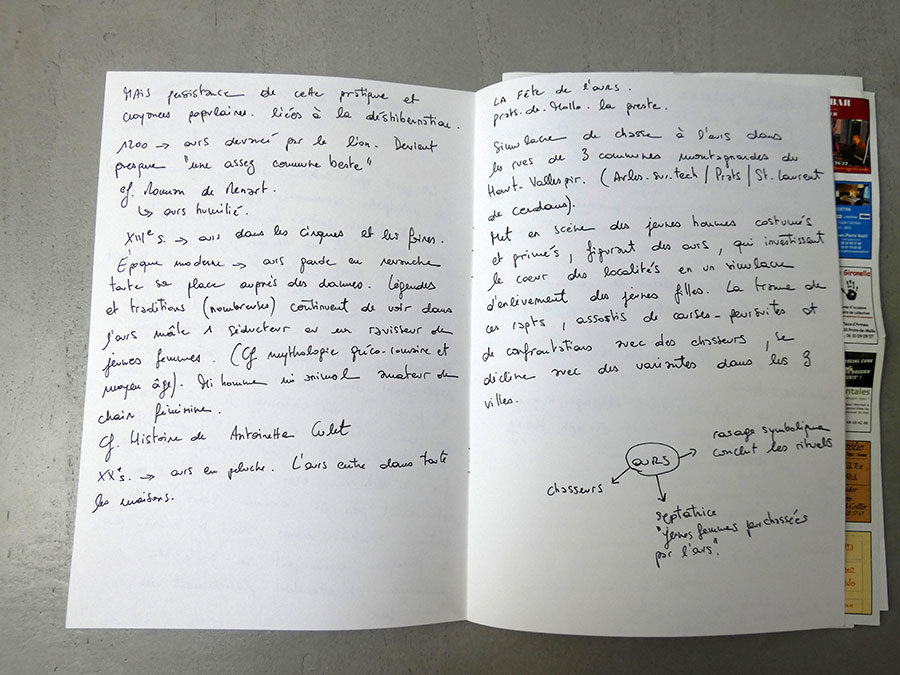 MAIS persistance de cette pratique et
croyances populaires. liées à la déshibernation.
1200 → ours devancé par le lion. Devient
presque "une assez commune beste"
cf. Roman de Renart.
↳ ours humilié.
XIIIe s. → ours dans les cirques et les foires.
Époque moderne → ours garde en revanche
toute sa place auprès des dames. Légendes
et traditions (nombreuses) continuent de voir dans
l'ours mâle 1 séducteur ou un ravisseur de
jeunes femmes. (Cf mythologie gréco-romaine et
moyen âge). Mi homme mi animal amateur de
chair féminine.
Cf. Histoire de Antoinette Culet
XXe s. → ours en peluche. L'ours entre dans toute
les maisons.
LA FÊTE de l'ours.
prats. de. Mollo. la preste.
Simulacre de chasse à l'ours dans
les rues de 3 communes montagnardes du
Haut-Vallespir. (Arles. sur. tech / Prats / St. Laurent
de cerdans).
Met en scène des jeunes hommes costumés
et grimés, figurant des ours, qui investissent
le coeur des localités en un simulacre
d'enlèvement des jeunes filles. La trame de
ces rapts, assortis de courses-poursuites et
de confrontations avec des chasseurs, se
décline avec des variantes dans les 3
villes.
OURS
rasage symbolique
conclut les rituels
chasseurs
"jeunes femmes pourchassées
par l'ours".
BAR
Gironella